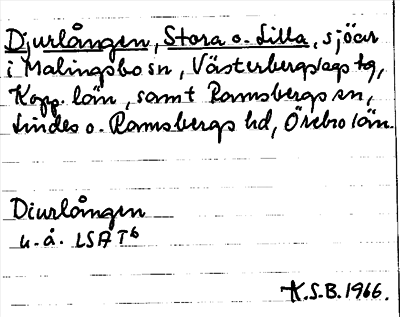 Djurlången, Stora o. Lilla, sjöar
i Malingsbo sn, Västerbergslags hg,
Kopp. län, samt Ramsbergs sn,
Lindes o. Ramsbergs hd, Örebro län.
Diurlången
u. å. LSA T6
K.S.B. 1966.